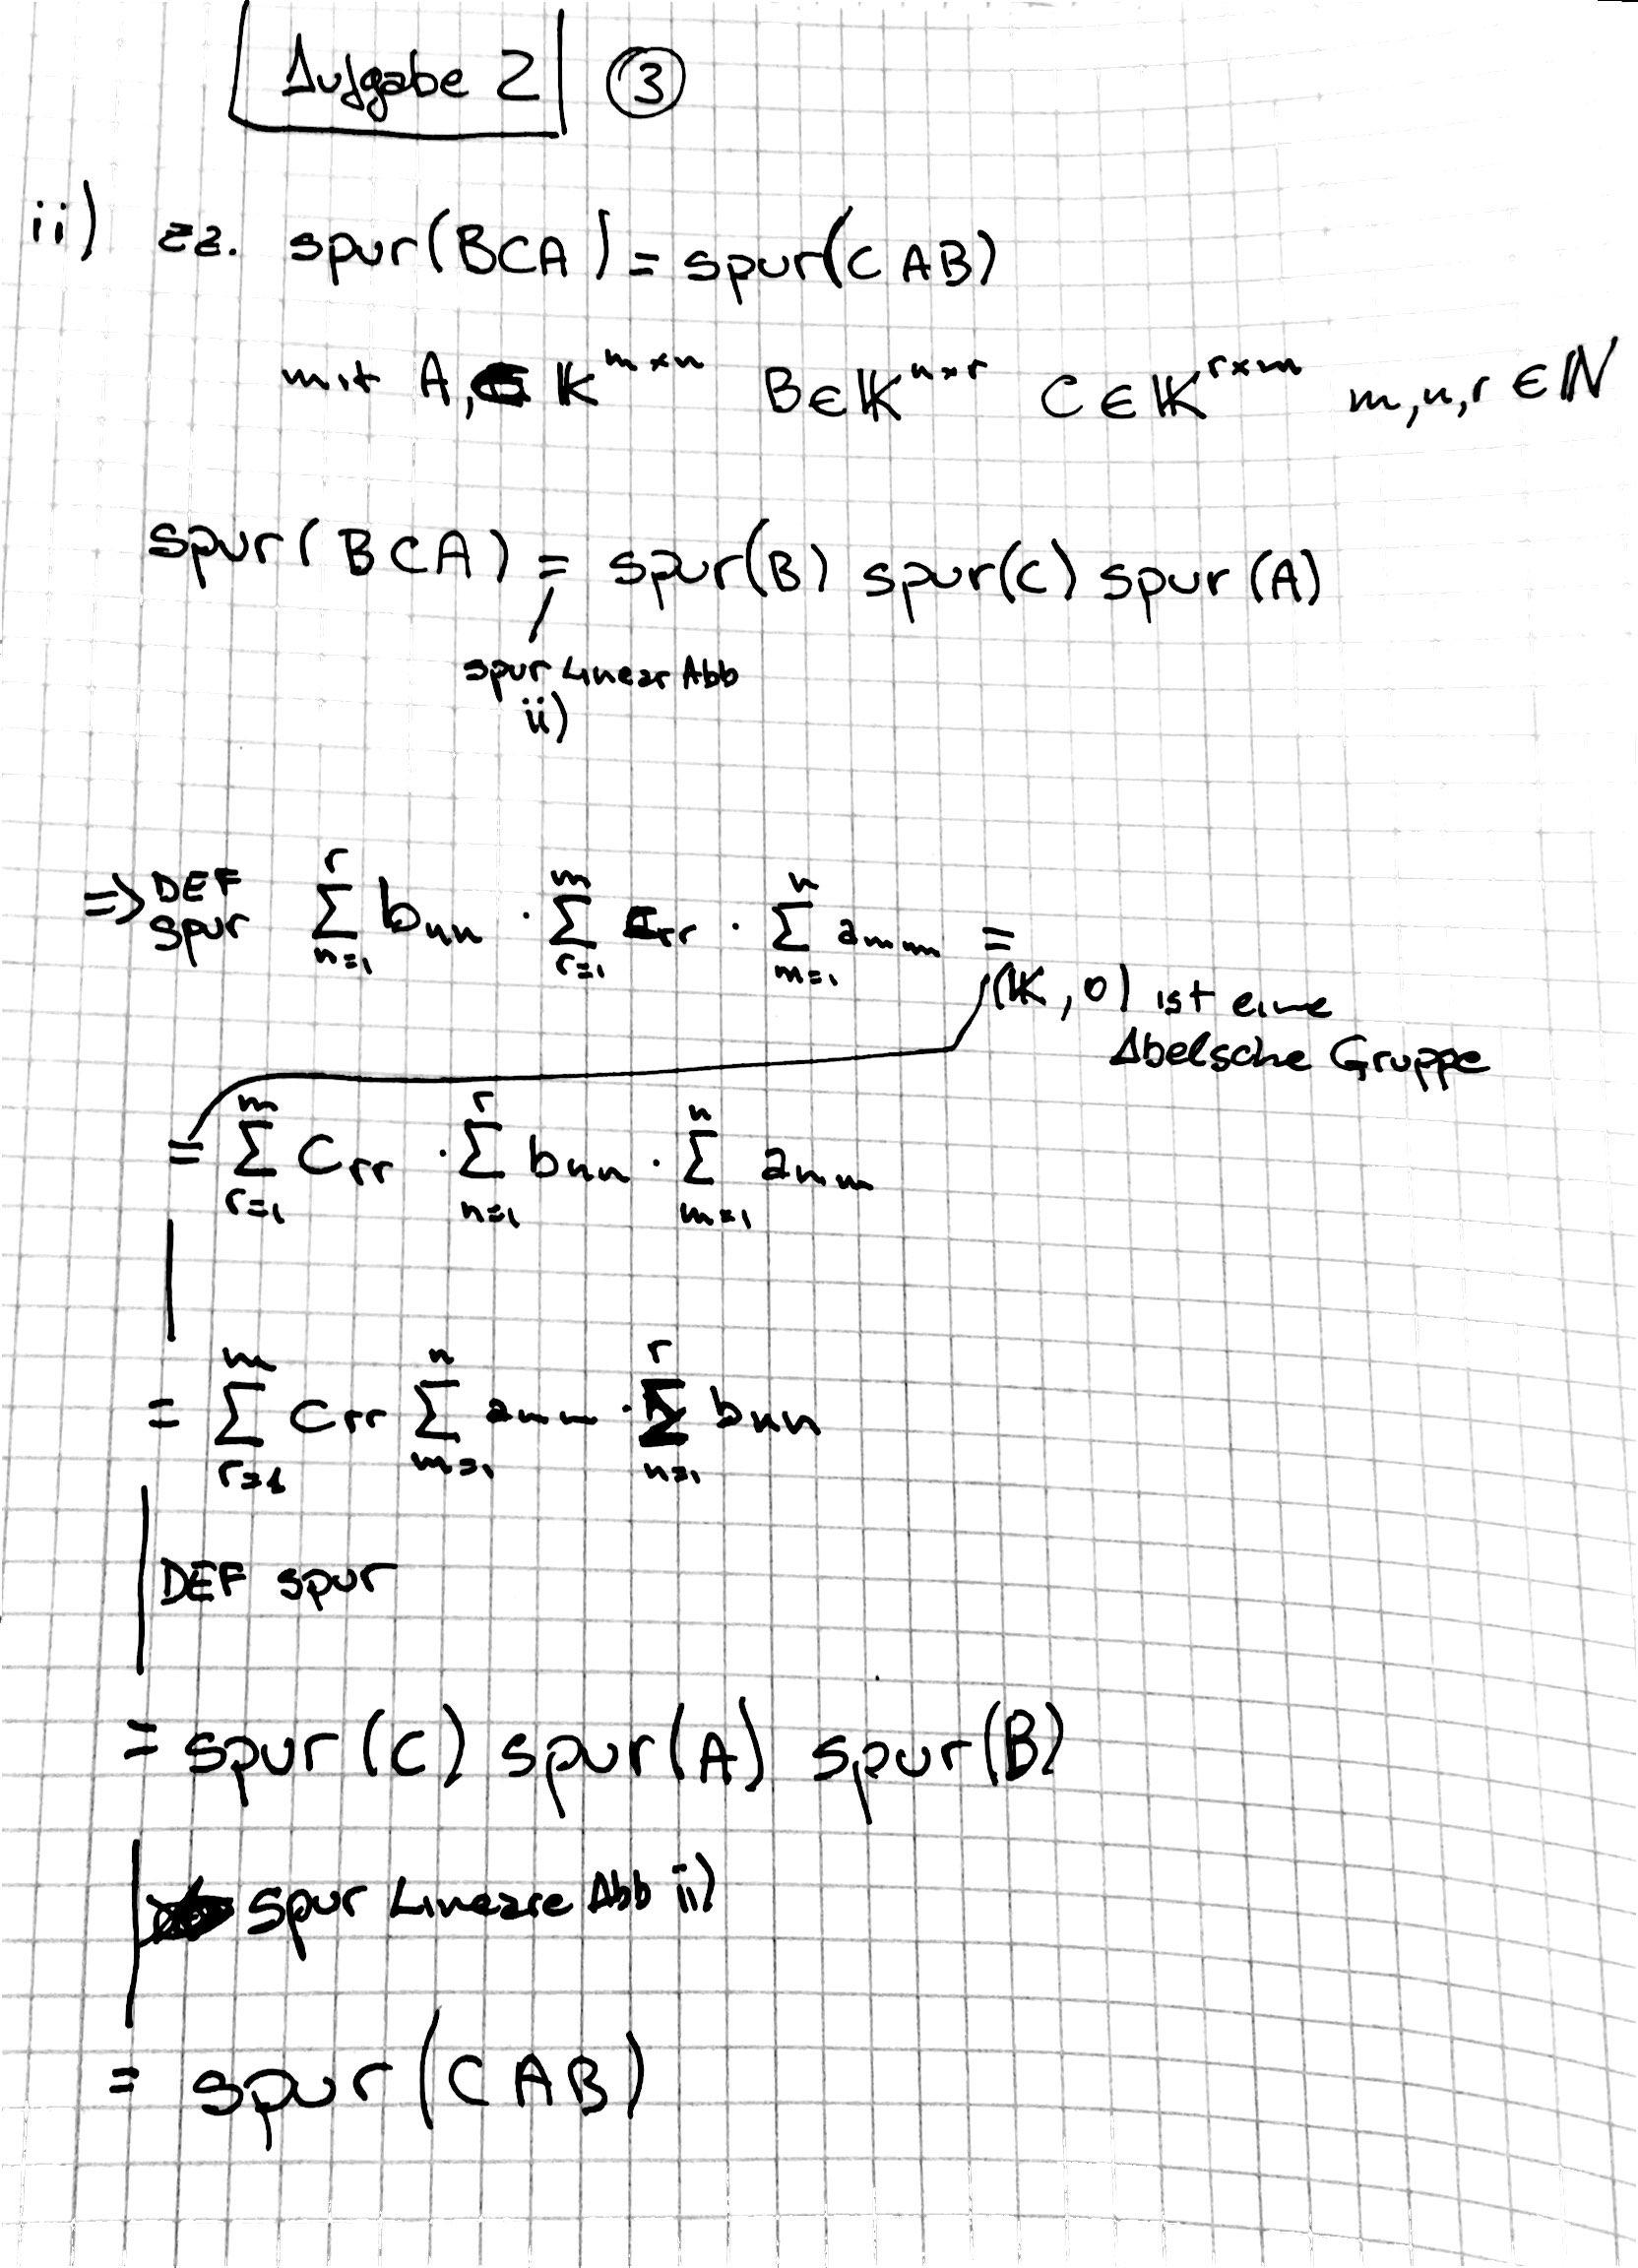 Aufgabe 2 ③
ii) zz. spur(BCA) = spur(CAB)
mit A, ∈ 𝕂^{m×n} B∈𝕂^{n×r} C∈𝕂^{r×m} m,n,r ∈ ℕ
spur(BCA) = spur(B) spur(C) spur(A)
spur Linear Abb
ii)
=> DEF spur \sum_{n=1}^{r} b_{nn} · \sum_{r=1}^{m} c_{rr} · \sum_{m=1}^{n} a_{mm} =
(𝕂, 0) ist eine
Abelsche Gruppe
= \sum_{r=1}^{m} c_{rr} · \sum_{n=1}^{r} b_{nn} · \sum_{m=1}^{n} a_{mm}
= \sum_{r=1}^{m} c_{rr} \sum_{m=1}^{n} a_{mm} · \sum_{n=1}^{r} b_{nn}
DEF spur
= spur(C) spur(A) spur(B)
spur Lineare Abb ii)
= spur(CAB)